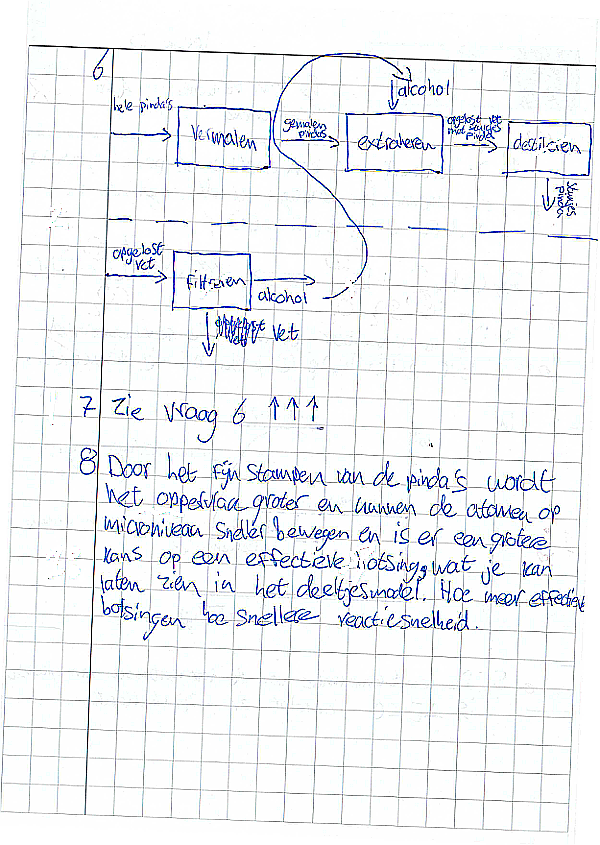 6
alcohol
hele pinda's
vermalen
gemalen pindas
extraheren
opgelost vet met stukjes pinda's
destileren
stukjes pinda
opgelost vet
filtreren
alcohol
vet
7 Zie vraag 6 ↑↑↑
8 Door het fijn stampen van de pinda's wordt
het oppervlak groter en kunnen de atomen op
microniveau sneller bewegen en is er een grotere
kans op een effectieve botsing, wat je kan
laten zien in het deeltjesmodel. Hoe meer effectieve
botsingen hoe snellere reactiesnelheid.